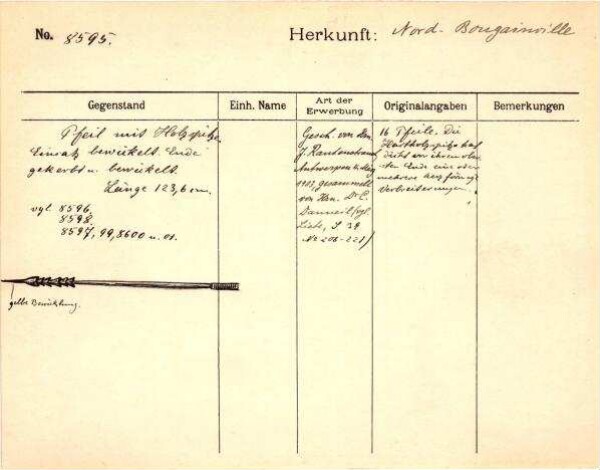 No. 8595.
Herkunft: Nord-Bougainville
Gegenstand
Einh. Name
Art der Erwerbung
Originalangaben
Bemerkungen
Pfeil mit Holzspitze
Einsatz bewickelt. Ende
gekerbt u. bewickelt.
Länge 123,6 cm.
vgl. 8596
8598.
8597, 99, 8600 u. 01.
gelbe Bewicklung.
Gesch. von den
J.
Antwerpen
1909, gesammelt
von Hrn. Dr. E.
Danneil (vgl.
Liste, S. 39
No 206-221)
16 Pfeile. Die
Hartholzspitze hat
dicht vor ihrem
Ende eine oder
mehrere
Verbreiterungen.